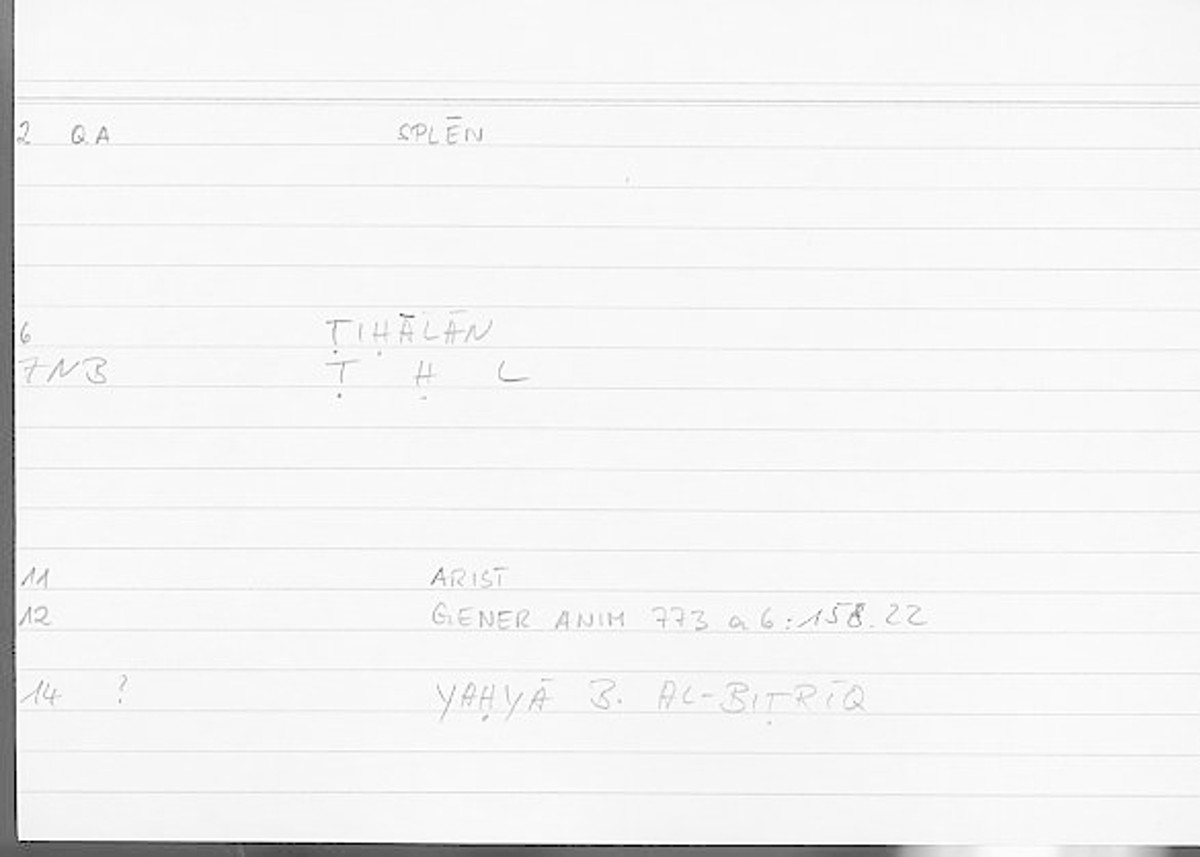 2 QA SPLĒN
6 ṬIḤĀLĀN
7 NB Ṭ Ḥ L
11 ARIST
12 GENER ANIM 773 a 6 : 158.22
14 ? YAḤYĀ B. AL-BIṬRĪQ